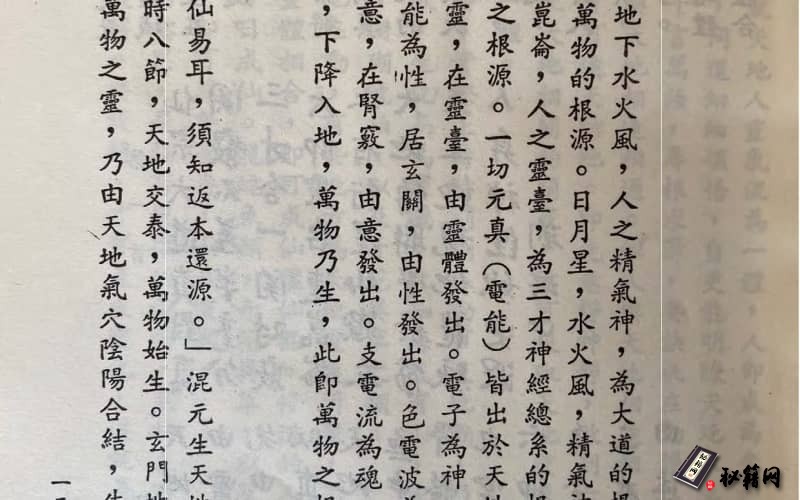 地下水火風，人之精氣神，為大道的
萬物的根源。日月星，水火風，精氣
崑崙，人之靈臺，為三才神經總系的
之根源。一切元真（電能）皆出於天
靈，在靈臺，由靈體發出。電子為神
能為性，居玄關，由性發出。色電波
意，在腎竅，由意發出。支電流為魂
，下降入地，萬物乃生，此即萬物之
仙易耳，須知返本還源。」混元生天
時八節，天地交泰，萬物始生。玄門
萬物之靈，乃由天地氣穴陰陽合結，
一
秘籍网